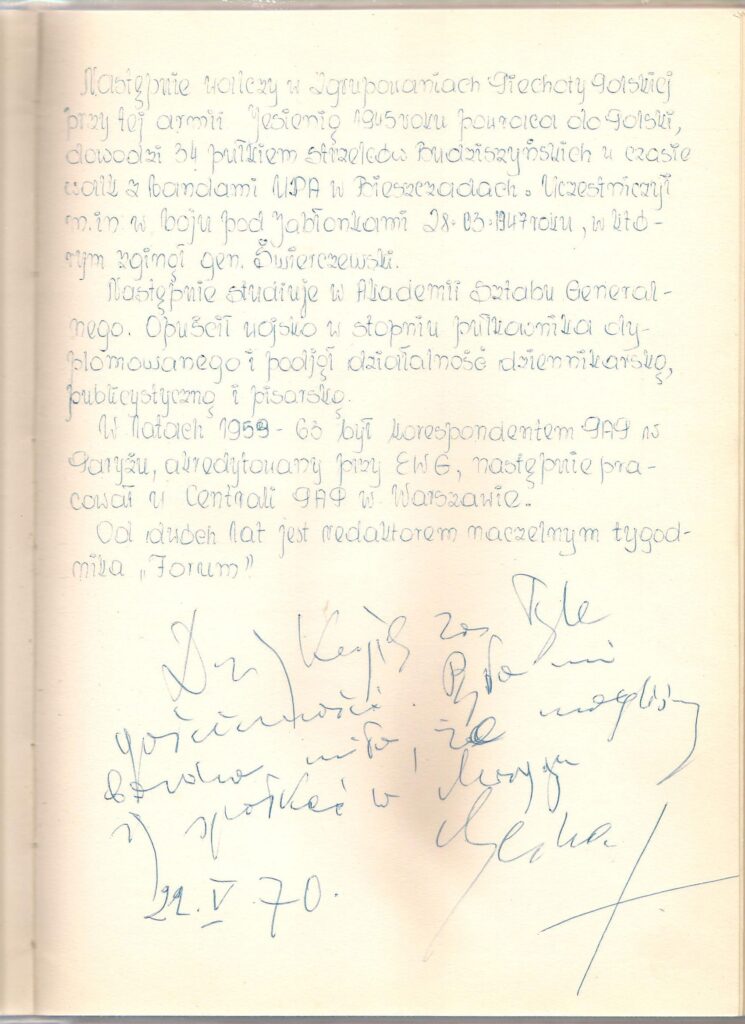 Następnie walczy w Zgrupowaniach Piechoty Polskiej
przy tej armii Jesienią 1945 roku powraca do Polski,
dowodzi 34 pułkiem strzelców Budziszyńskich w czasie
walk z bandami UPA w Bieszczadach. Uczestniczył
m.in. w boju pod Jabłonkami 28.03.1947 roku, w któ-
rym zginął gen. Świerczewski.
Następnie studiuje w Akademii Sztabu General-
nego. Opuścił wojsko w stopniu pułkownika dy-
plomowanego i podjął działalność dziennikarską,
publicystyczną i pisarską.
W latach 1959-63 był korespondentem PAP w
Paryżu, akredytowany przy EWG, następnie pra-
cował w Centrali PAP w Warszawie.
Od dwóch lat jest redaktorem naczelnym tygod-
nika „Forum”
za Tyle
gościnności. Było mi
bardzo miło, że mogliśmy
się spotkać w
22.V.70.